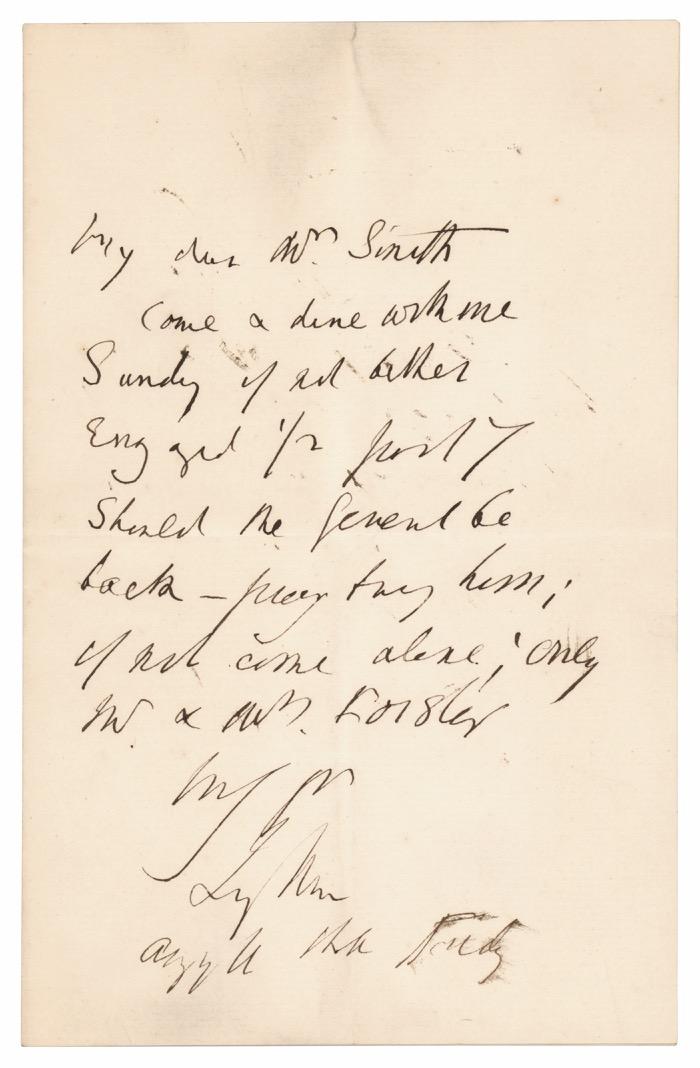 My dear Mrs. Smith
Come & dine with me
Sunday if not better
Engaged 1/2 past 7
Should the General be
back – pray bring him;
if not come alone; only
Mr. & Mrs. Forster
Lytton